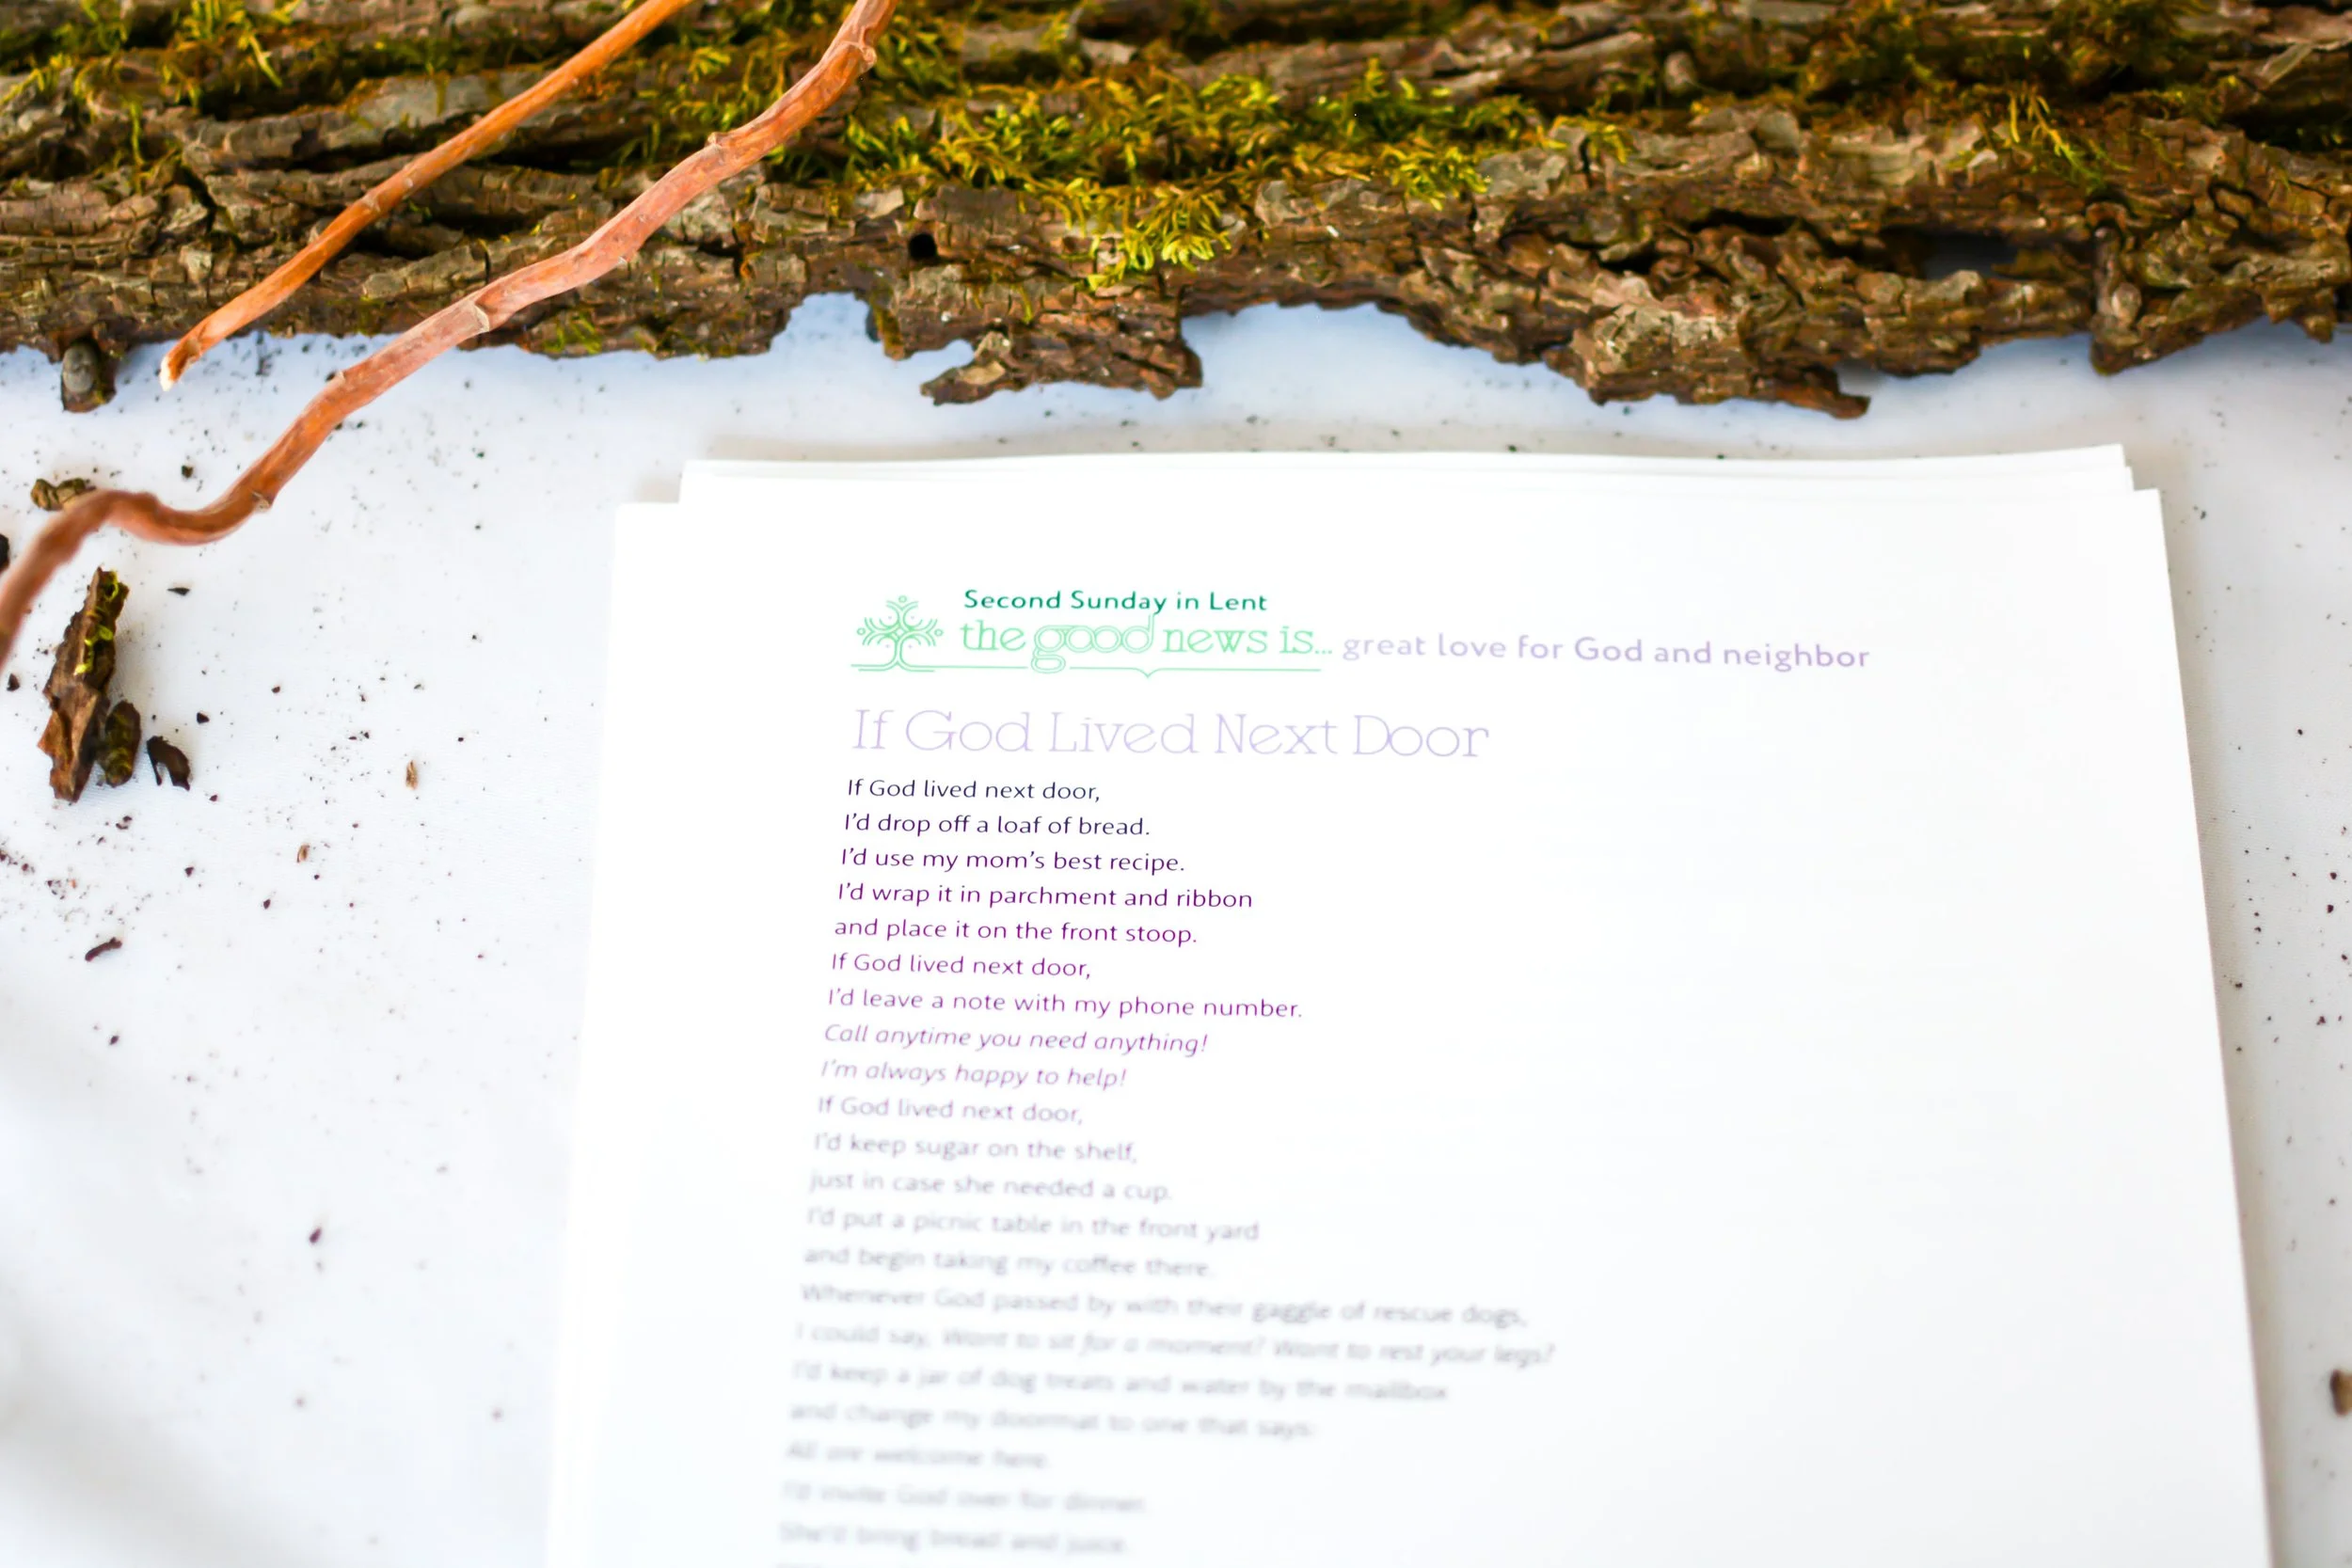 Second Sunday in Lent
the good news is... great love for God and neighbor
If God Lived Next Door
If God lived next door,
I'd drop off a loaf of bread.
I'd use my mom's best recipe.
I'd wrap it in parchment and ribbon
and place it on the front stoop.
If God lived next door,
I'd leave a note with my phone number.
Call anytime you need anything!
I'm always happy to help!
If God lived next door,
I'd keep sugar on the shelf,
just in case she needed a cup.
I'd put a picnic table in the front yard
and begin taking my coffee there.
Whenever God passed by with their gaggle of rescue dogs,
I could say, Want to sit for a moment? Want to rest your legs?
I'd keep a jar of dog treats and water by the mailbox
and change my doormat to one that says:
All are welcome here.
I'd invite God over for dinner.
She'd bring bread and juice.